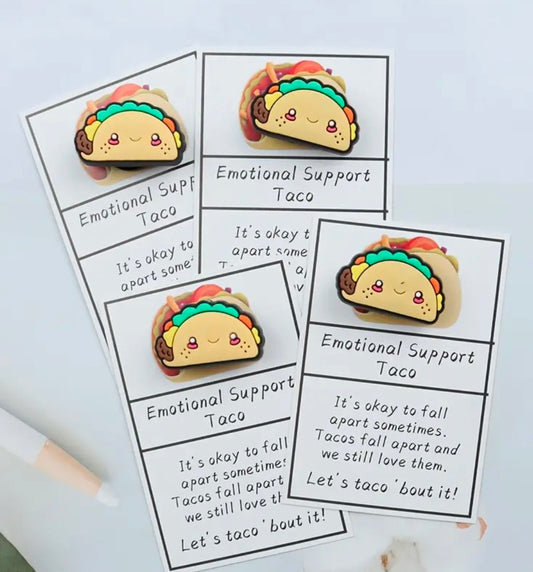 Emotional Support
Taco
It's okay to
apart
Emotional Support
Taco
It's okay t
apart some
Emotional Support
Taco
It's okay to fall
apart sometimes.
Tacos fall apart and
we still love them.
Let's taco 'bout it!
Emotional Support
Taco
It's okay to fall
apart sometimes
Tacos fall apart
we still love
Let's taco 'bout it!